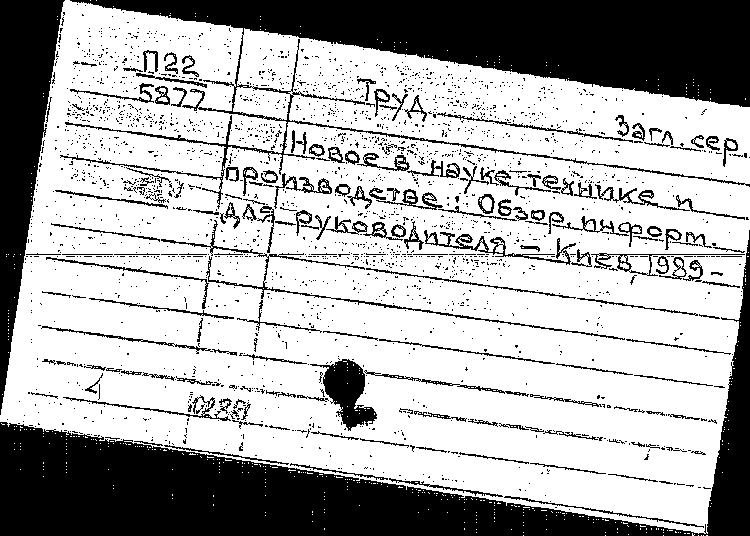 П22
5877
Труд
Загл. сер.
Новое в науке, технике и
производстве: Обзор. информ.
для руководителя – Киев, 1989 –